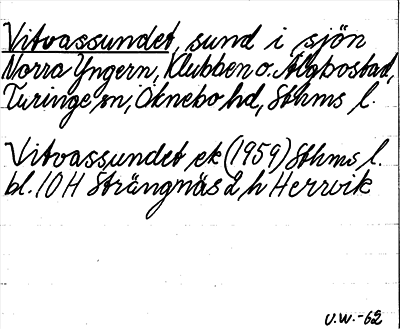 Vitvassundet, sund i sjön
Norra Yngern, Klubben o. Älgbostad,
Turinge sn, Öknebo hd, Sthms l.
Vitvassundet ek (1959) Sthms l.
bl. 10 H Strängnäs 2 h Herrvik
U.W. -62